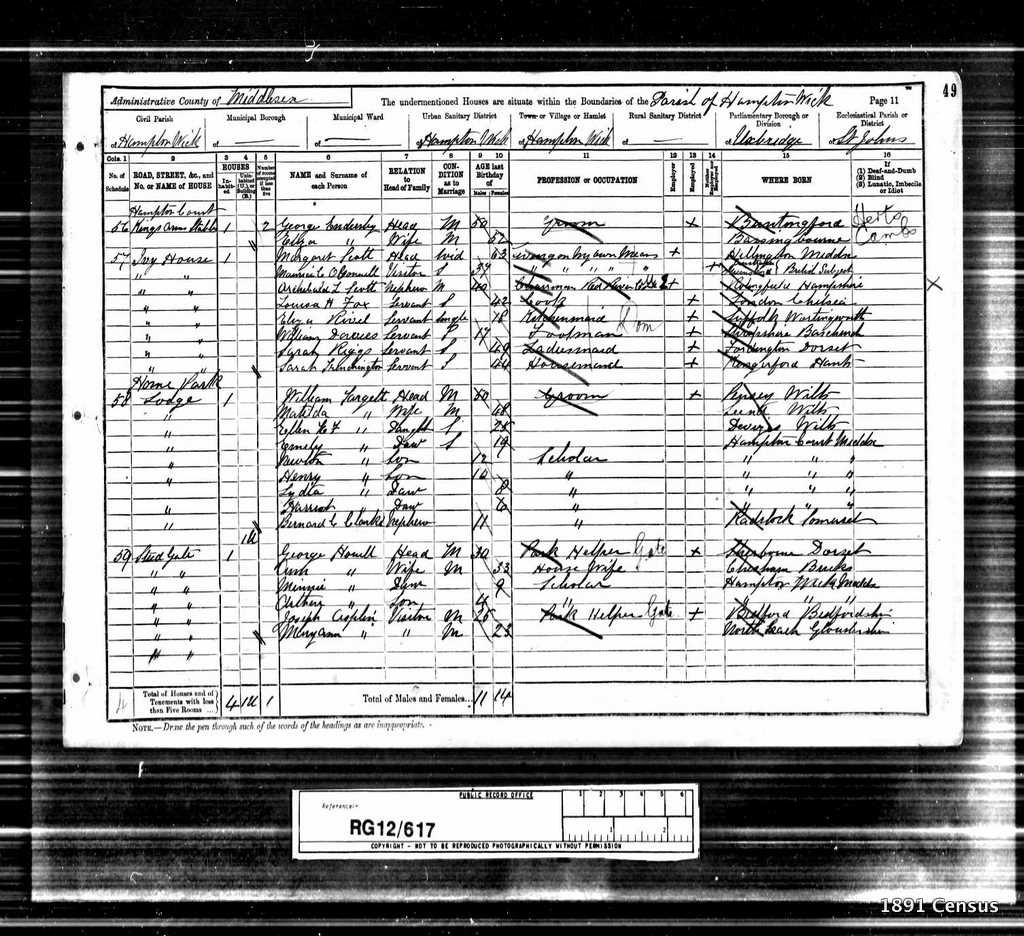 49
Administrative County of Middlesex The undermentioned Houses are situate within the Boundaries of the Parish of Hampton Wick Page 11
Civil Parish Municipal Borough Municipal Ward Urban Sanitary District Town or Village or Hamlet Rural Sanitary District Parliamentary Borough or Division Ecclesiastical Parish or District
of Hampton Wick of — of — of Hampton Wick of Hampton Wick of — of Uxbridge of St Johns
Cols. 1 2 3 4 5 6 7 8 9 10 11 12 13 14 15 16
No. of Schedule ROAD, STREET, &c., and No. or NAME of HOUSE HOUSES Inhabited Uninhabited (U.), or Building (B.) Number of rooms occupied if less than five NAME and Surname of each Person RELATION to Head of Family CONDITION as to Marriage AGE last Birthday of Males Females PROFESSION or OCCUPATION Employer Employed Neither WHERE BORN If (1) Deaf-and-Dumb (2) Blind (3) Lunatic, Imbecile or Idiot
Hampton Court
56 Kings Arms Stable 1 2 George Enderby Head M 50 Groom + Buntingford Herts
Eliza " Wife M 52 Bassingbourne Cambs
57 Ivy House 1 Margaret Scott Head Wid 53 Living on my own Means + Hillingdon Middx
" " O'Connell Visitor S 37 " " " " British Subject
" " Archibald L Scott Nephew M 40 Chairman Red River + Hampshire
" " Louisa H Fox Servant S 42 Cook + London Chelsea
" " Eliza Servant Single 18 Kitchenmaid Dom + Suffolk Worlingworth
" " William Davies Servant S 17 Footman + Shropshire Baschurch
" " Sarah Riggs Servant S 49 Ladiesmaid + Fordington Dorset
" " Sarah Servant S 44 Housemaid + Hants
Home Park
58 Lodge 1 William Targett Head M 50 Groom + Wilts
" Matilda " Wife M 48 Wilts
" Ellen " Daught S 25 Devizes Wilts
" Emily " Daur S 19 Hampton Court Middx
" Newton " Son 12 Scholar " " "
" Henry " Son 10 " " " "
" Lydia " Daur 8 " " " "
" Harriet Daur 6 " " " "
" Bernard C Clarke Nephew 11 " Radstock Somerset
1U
59 Stud Gate 1 George Howell Head M 30 Park Helper Gate + Sherborne Dorset
" " " Wife M 33 House Wife Chesham Bucks
" " Minnie " Daur 9 Scholar Hampton Wick Middx
" " " Son 4 " " " "
" " Joseph Visitor M 25 Park Helper Gate + Bedford Bedfordshire
" " Mary ann " " M 23 North Leach
" "
Total of Houses and of Tenements with less than Five Rooms ... 4 1U 1 Total of Males and Females... 11 14
NOTE.—Draw the pen through such of the words of the headings as are inappropriate.
PUBLIC RECORD OFFICE
1 2 3 4 5 6
Reference:-
RG12/617
1 2
COPYRIGHT - NOT TO BE REPRODUCED PHOTOGRAPHICALLY WITHOUT PERMISSION
1891 Census